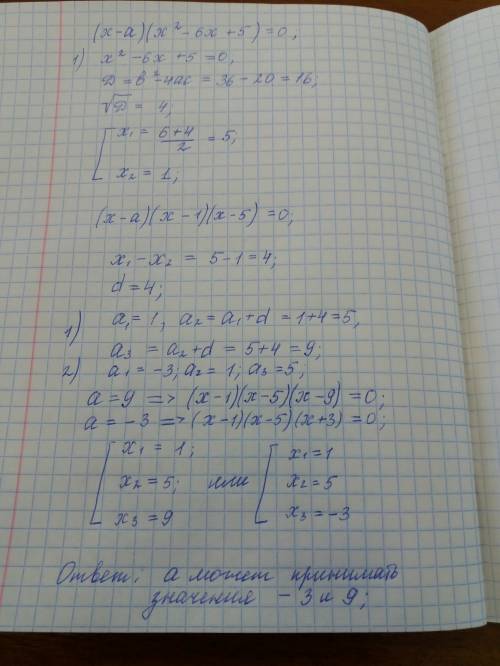 (x-a)(x² - 6x + 5) = 0,
1) x² - 6x + 5 = 0,
D = b² - 4ac = 36 - 20 = 16;
√D = 4;
x₁ = (6+4)/2 = 5,
x₂ = 1;
(x-a)(x-1)(x-5) = 0;
x₁ - x₂ = 5 - 1 = 4;
d = 4;
1) a₁ = 1, a₂ = a₁ + d = 1 + 4 = 5,
a₃ = a₂ + d = 5 + 4 = 9;
2) a₁ = -3; a₂ = 1; a₃ = 5,
a = 9 => (x-1)(x-5)(x-9) = 0;
a = -3 => (x-1)(x-5)(x+3) = 0;
x₁ = 1; x₁ = 1
x₂ = 5; или x₂ = 5
x₃ = 9 x₃ = -3
Ответ: а может принимать
значения -3 и 9;